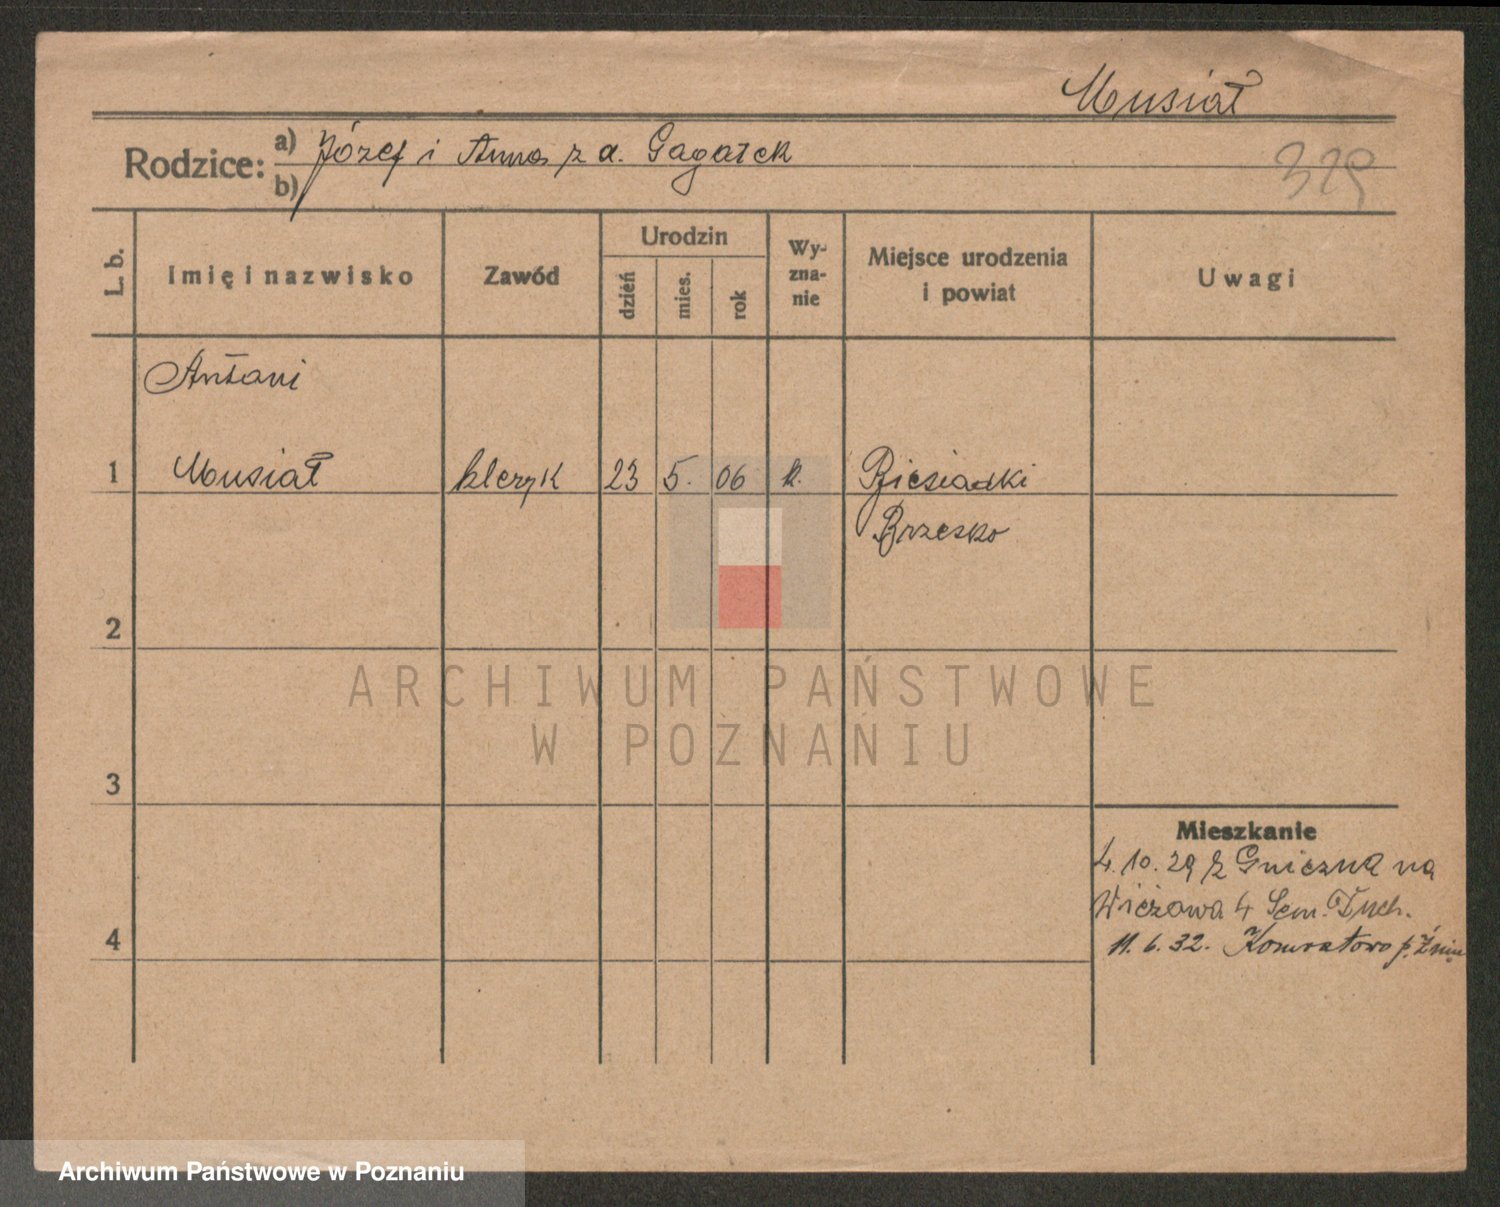 Musiał
Rodzice: a) Józef i Anna z d. Gagatek
b)
329
L. b.
Imię i nazwisko
Zawód
Urodzin
dzień
mies.
rok
Wy-
zna-
nie
Miejsce urodzenia
i powiat
Uwagi
Antoni
1 Musiał kleryk 23 5. 06 k. Biesiadki
Brzesko
2
ARCHIWUM PAŃSTWOWE
W POZNANIU
3
Mieszkanie
4.10.29 z Gniezna na
Wieżowa 4 Sem. Duch.
4
11.6.32. Komratowo p. Żnin
Archiwum Państwowe w Poznaniu